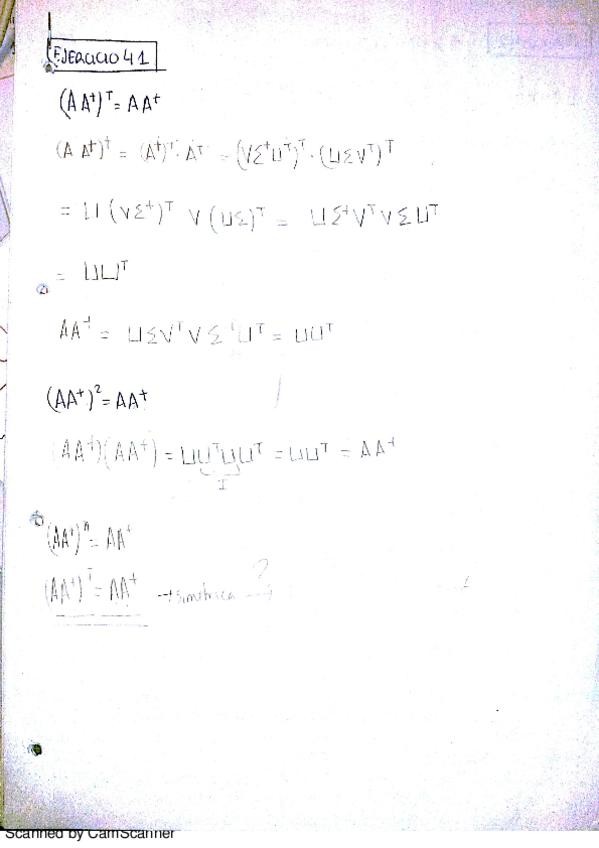 EJERCICIO 41
(AA⁺)ᵀ = AA⁺
(A A⁺)⁺ = (A⁺)ᵀ · Aᵀ = (VΣ⁺Uᵀ)ᵀ · (UΣVᵀ)ᵀ
= U (VΣ⁺)ᵀ V (UΣ)ᵀ = UΣ⁺VᵀVΣUᵀ
= UUᵀ
AA⁺ = UΣVᵀVΣ⁺Uᵀ = UUᵀ
(AA⁺)² = AA⁺
(AA⁺)(AA⁺) = UUᵀUUᵀ = UUᵀ = AA⁺
I
(AA⁺)ⁿ = AA⁺
(AA⁺)ᵀ = AA⁺ → simetrica ?
Scanned by CamScanner